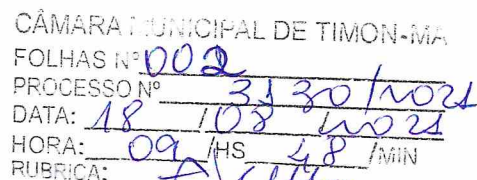 CÂMARA MUNICIPAL DE TIMON-MA
FOLHAS Nº 002
PROCESSO Nº 3130/2021
DATA: 18 / 08 / 2021
HORA: 09 /HS 48 /MIN
RUBRICA: